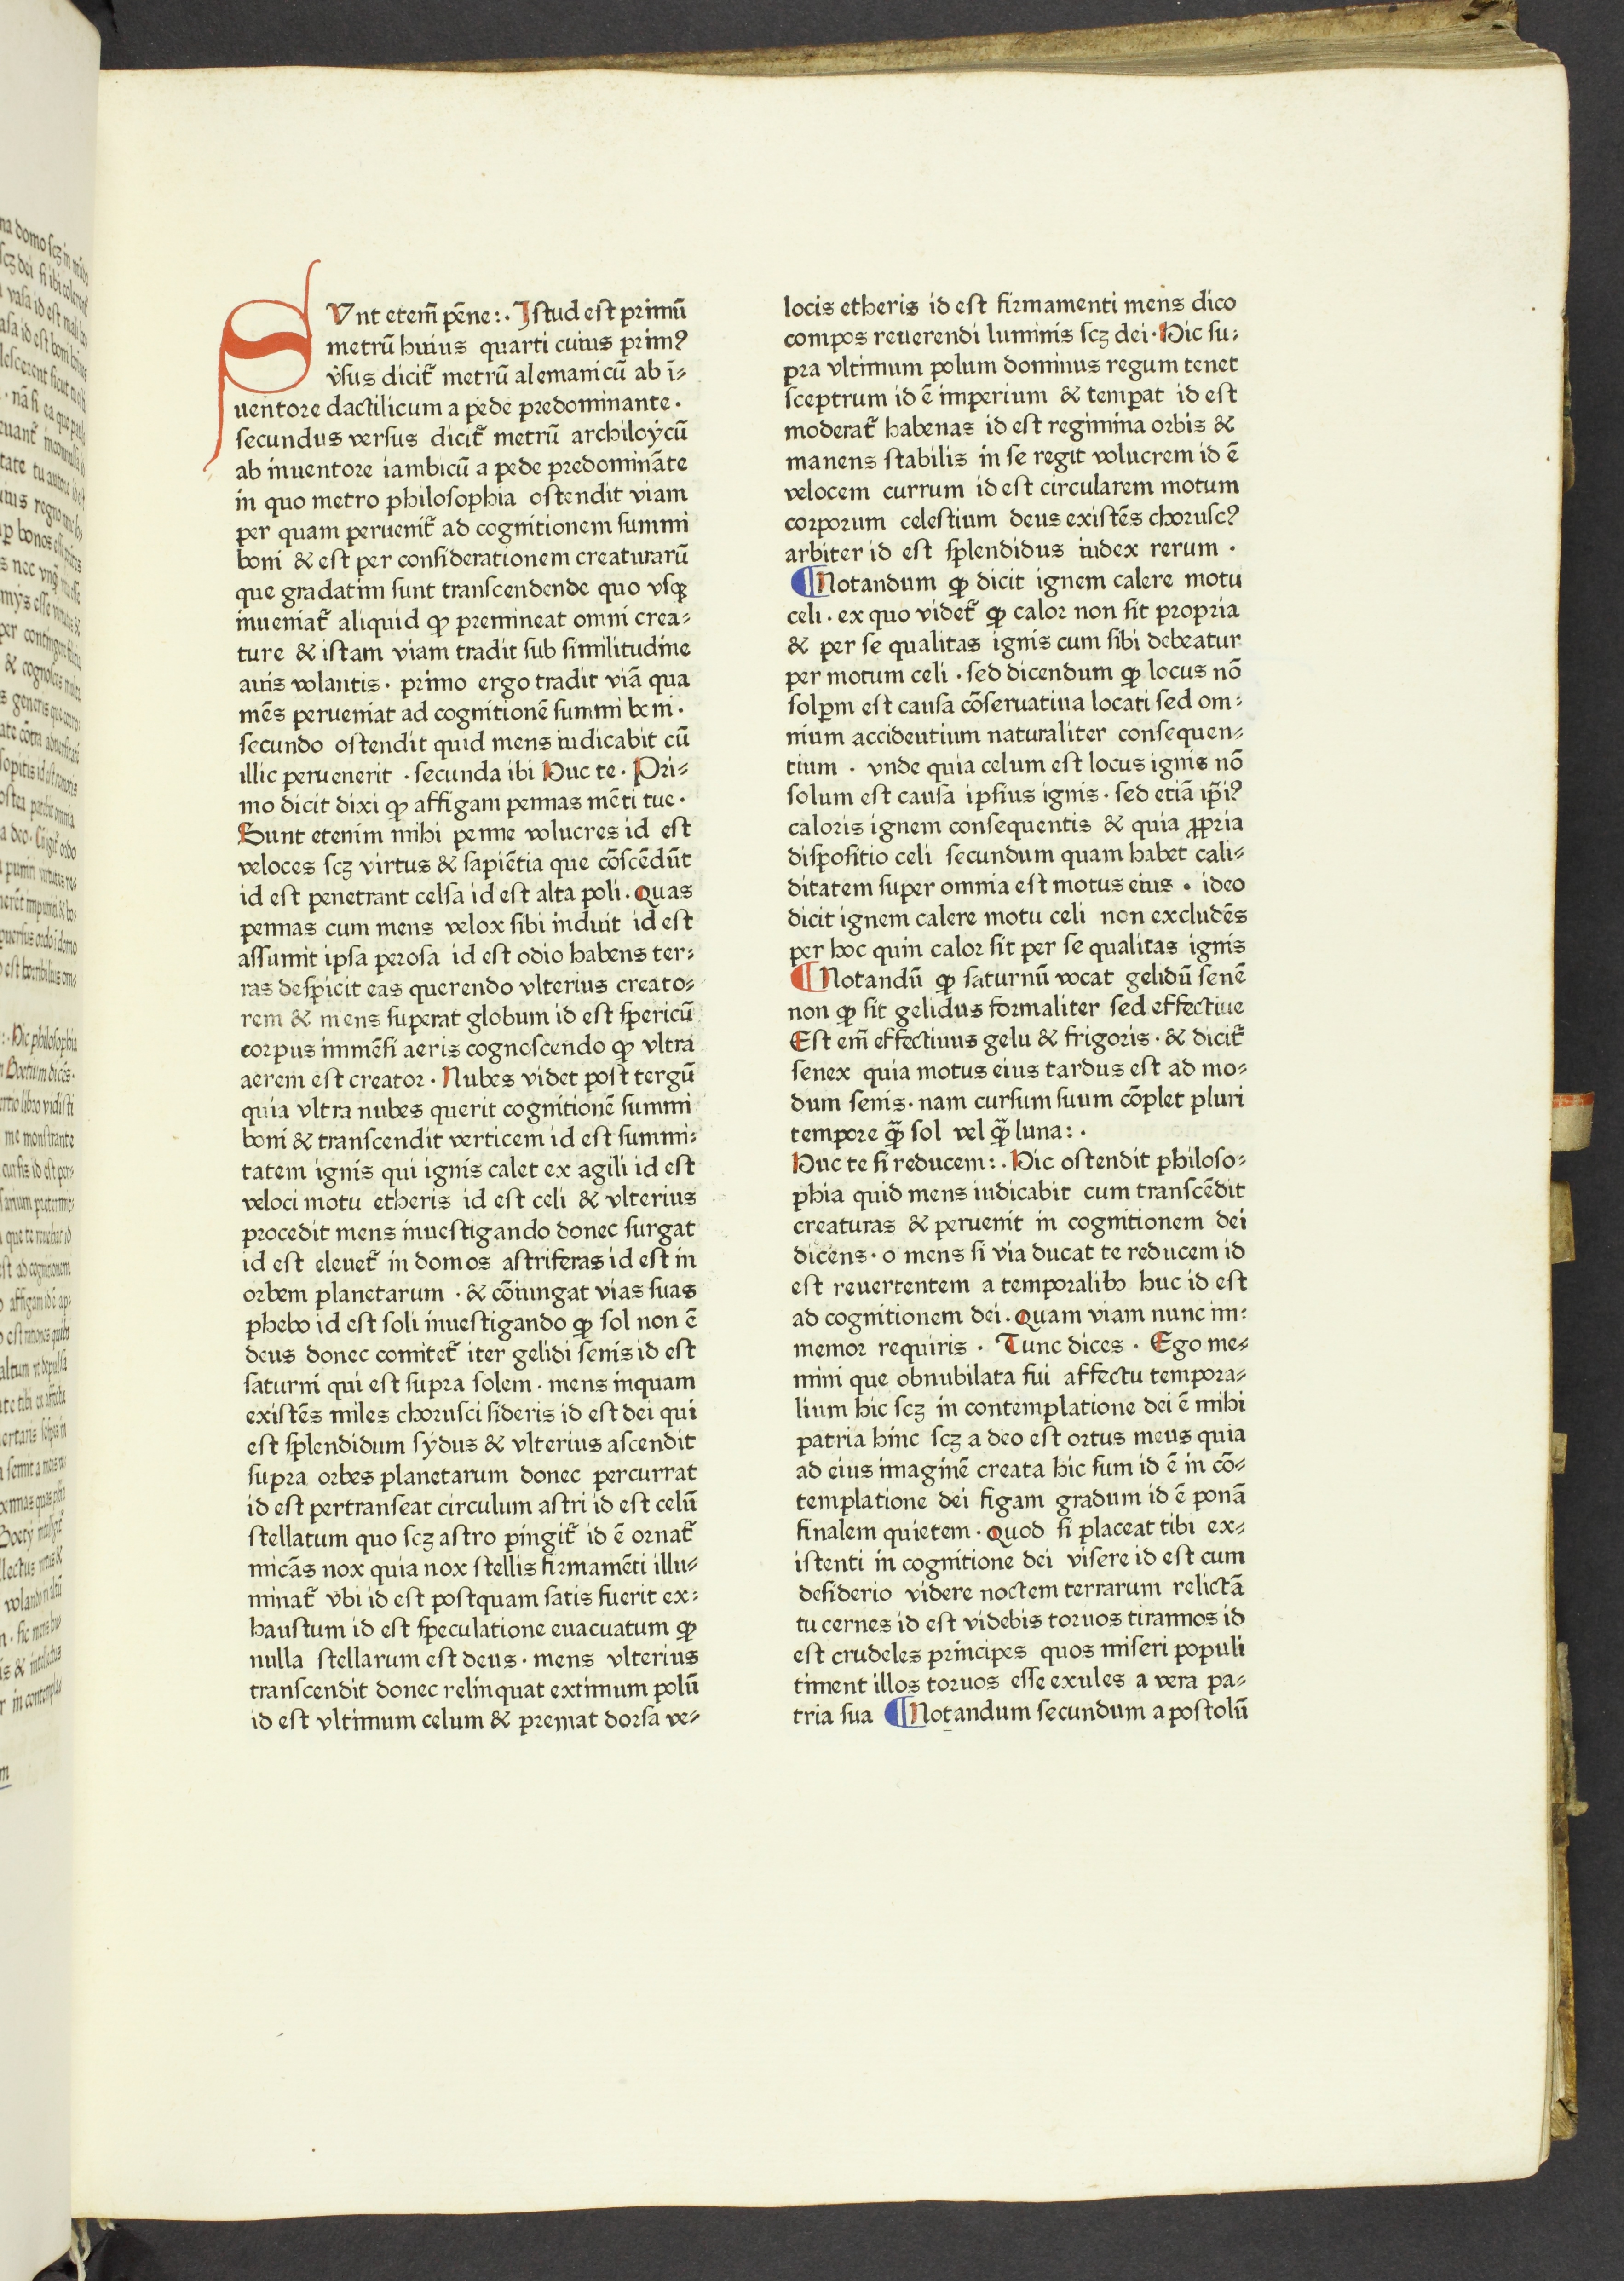 SVnt etem̄ pēne:. Istud est primū
metrū huius quarti cuius prim⁹
v̓sus dicit᷑ metrū alemanicū ab ī⸗
uentore dactilicum a pede predominante .
secundus versus dicit᷑ metrū archiloycū
ab inuentore iambicū a pede predomināte
in quo metro philosophia ostendit viam
per quam peruenit᷑ ad cognitionem summi
boni & est per considerationem creaturarū
que gradatim sunt transcendende quo vsqꝫ
inueniat᷑ aliquid ꝙ premineat omni crea⸗
ture & istam viam tradit sub similitudine
auis volantis . primo ergo tradit viā qua
mēs perueniat ad cognitionē summi boni .
secundo ostendit quid mens iudicabit cū
illic peruenerit . secunda ibi Huc te . Pri⸗
mo dicit dixi ꝙ affigam pennas mēti tue .
Sunt etenim mihi penne volucres id est
veloces scꝫ virtus & sapiētia que cōscēdūt
id est penetrant celsa id est alta poli . Quas
pennas cum mens velox sibi induit id est
assumit ipsa perosa id est odio habens ter⸗
ras despicit eas querendo vlterius creato⸗
rem & mens superat globum id est spericū
corpus immēsi aeris cognoscendo ꝙ vltra
aerem est creator . Nubes videt post tergū
quia vltra nubes querit cognitionē summi
boni & transcendit verticem id est summi⸗
tatem ignis qui ignis calet ex agili id est
veloci motu etheris id est celi & vlterius
procedit mens inuestigando donec surgat
id est eleuet᷑ in domos astriferas id est in
orbem planetarum . & cōiungat vias suas
phebo id est soli inuestigando ꝙ sol non ē
deus donec comitet᷑ iter gelidi senis id est
saturni qui est supra solem . mens inquam
existēs miles chorusci sideris id est dei qui
est splendidum sydus & vlterius ascendit
supra orbes planetarum donec percurrat
id est pertranseat circulum astri id est celū
stellatum quo scꝫ astro pingit᷑ id ē ornat᷑
micās nox quia nox stellis firmamēti illu⸗
minat᷑ vbi id est postquam satis fuerit ex⸗
haustum id est speculatione euacuatum ꝙ
nulla stellarum est deus . mens vlterius
transcendit donec relinquat extimum polū
id est vltimum celum & premat dorsa ve⸗
locis etheris id est firmamenti mens dico
compos reuerendi luminis scꝫ dei . Hic su⸗
pra vltimum polum dominus regum tenet
sceptrum id ē imperium & temperat id est
moderat᷑ habenas id est regimina orbis &
manens stabilis in se regit volucrem id ē
velocem currum id est circularem motum
corporum celestium deus existēs chorusc⁹
arbiter id est splendidus iudex rerum .
¶Notandum ꝙ dicit ignem calere motu
celi . ex quo videt᷑ ꝙ calor non sit propria
& per se qualitas ignis cum sibi debeatur
per motum celi . sed dicendum ꝙ locus nō
solum est causa cōseruatiua locati sed om⸗
nium accidentium naturaliter consequen⸗
tium . vnde quia celum est locus ignis nō
solum est causa ipsius ignis . sed etiā ip̄i⁹
caloris ignem consequentis & quia ꝓpria
dispositio celi secundum quam habet cali⸗
ditatem super omnia est motus eius . ideo
dicit ignem calere motu celi non excludēs
per hoc quin calor sit per se qualitas ignis
¶Notandū ꝙ saturnū vocat gelidū senē
non ꝙ sit gelidus formaliter sed effectiue
Est em̄ effectiuus gelu & frigoris . & dicit᷑
senex quia motus eius tardus est ad mo⸗
dum senis . nam cursum suum cōplet pluri
tempore qᷓꝫ sol vel qᷓꝫ luna:.
Huc te si reducem:. Hic ostendit philoso⸗
phia quid mens iudicabit cum transcēdit
creaturas & peruenit in cognitionem dei
dicens . o mens si via ducat te reducem id
est reuertentem a temporalibꝫ huc id est
ad cognitionem dei . Quam viam nunc im⸗
memor requiris . Tunc dices . Ego me⸗
mini que obnubilata fui affectu tempora⸗
lium hic scꝫ in contemplatione dei ē mihi
patria hinc scꝫ a deo est ortus meus quia
ad eius imaginē creata hic sum id ē in cō⸗
templatione dei figam gradum id ē ponā
finalem quietem . Quod si placeat tibi ex⸗
istenti in cognitione dei visere id est cum
desiderio videre noctem terrarum relictā
tu cernes id est videbis toruos tirannos id
est crudeles principes quos miseri populi
timent illos toruos esse exules a vera pa⸗
tria sua ¶Notandum secundum apostolū